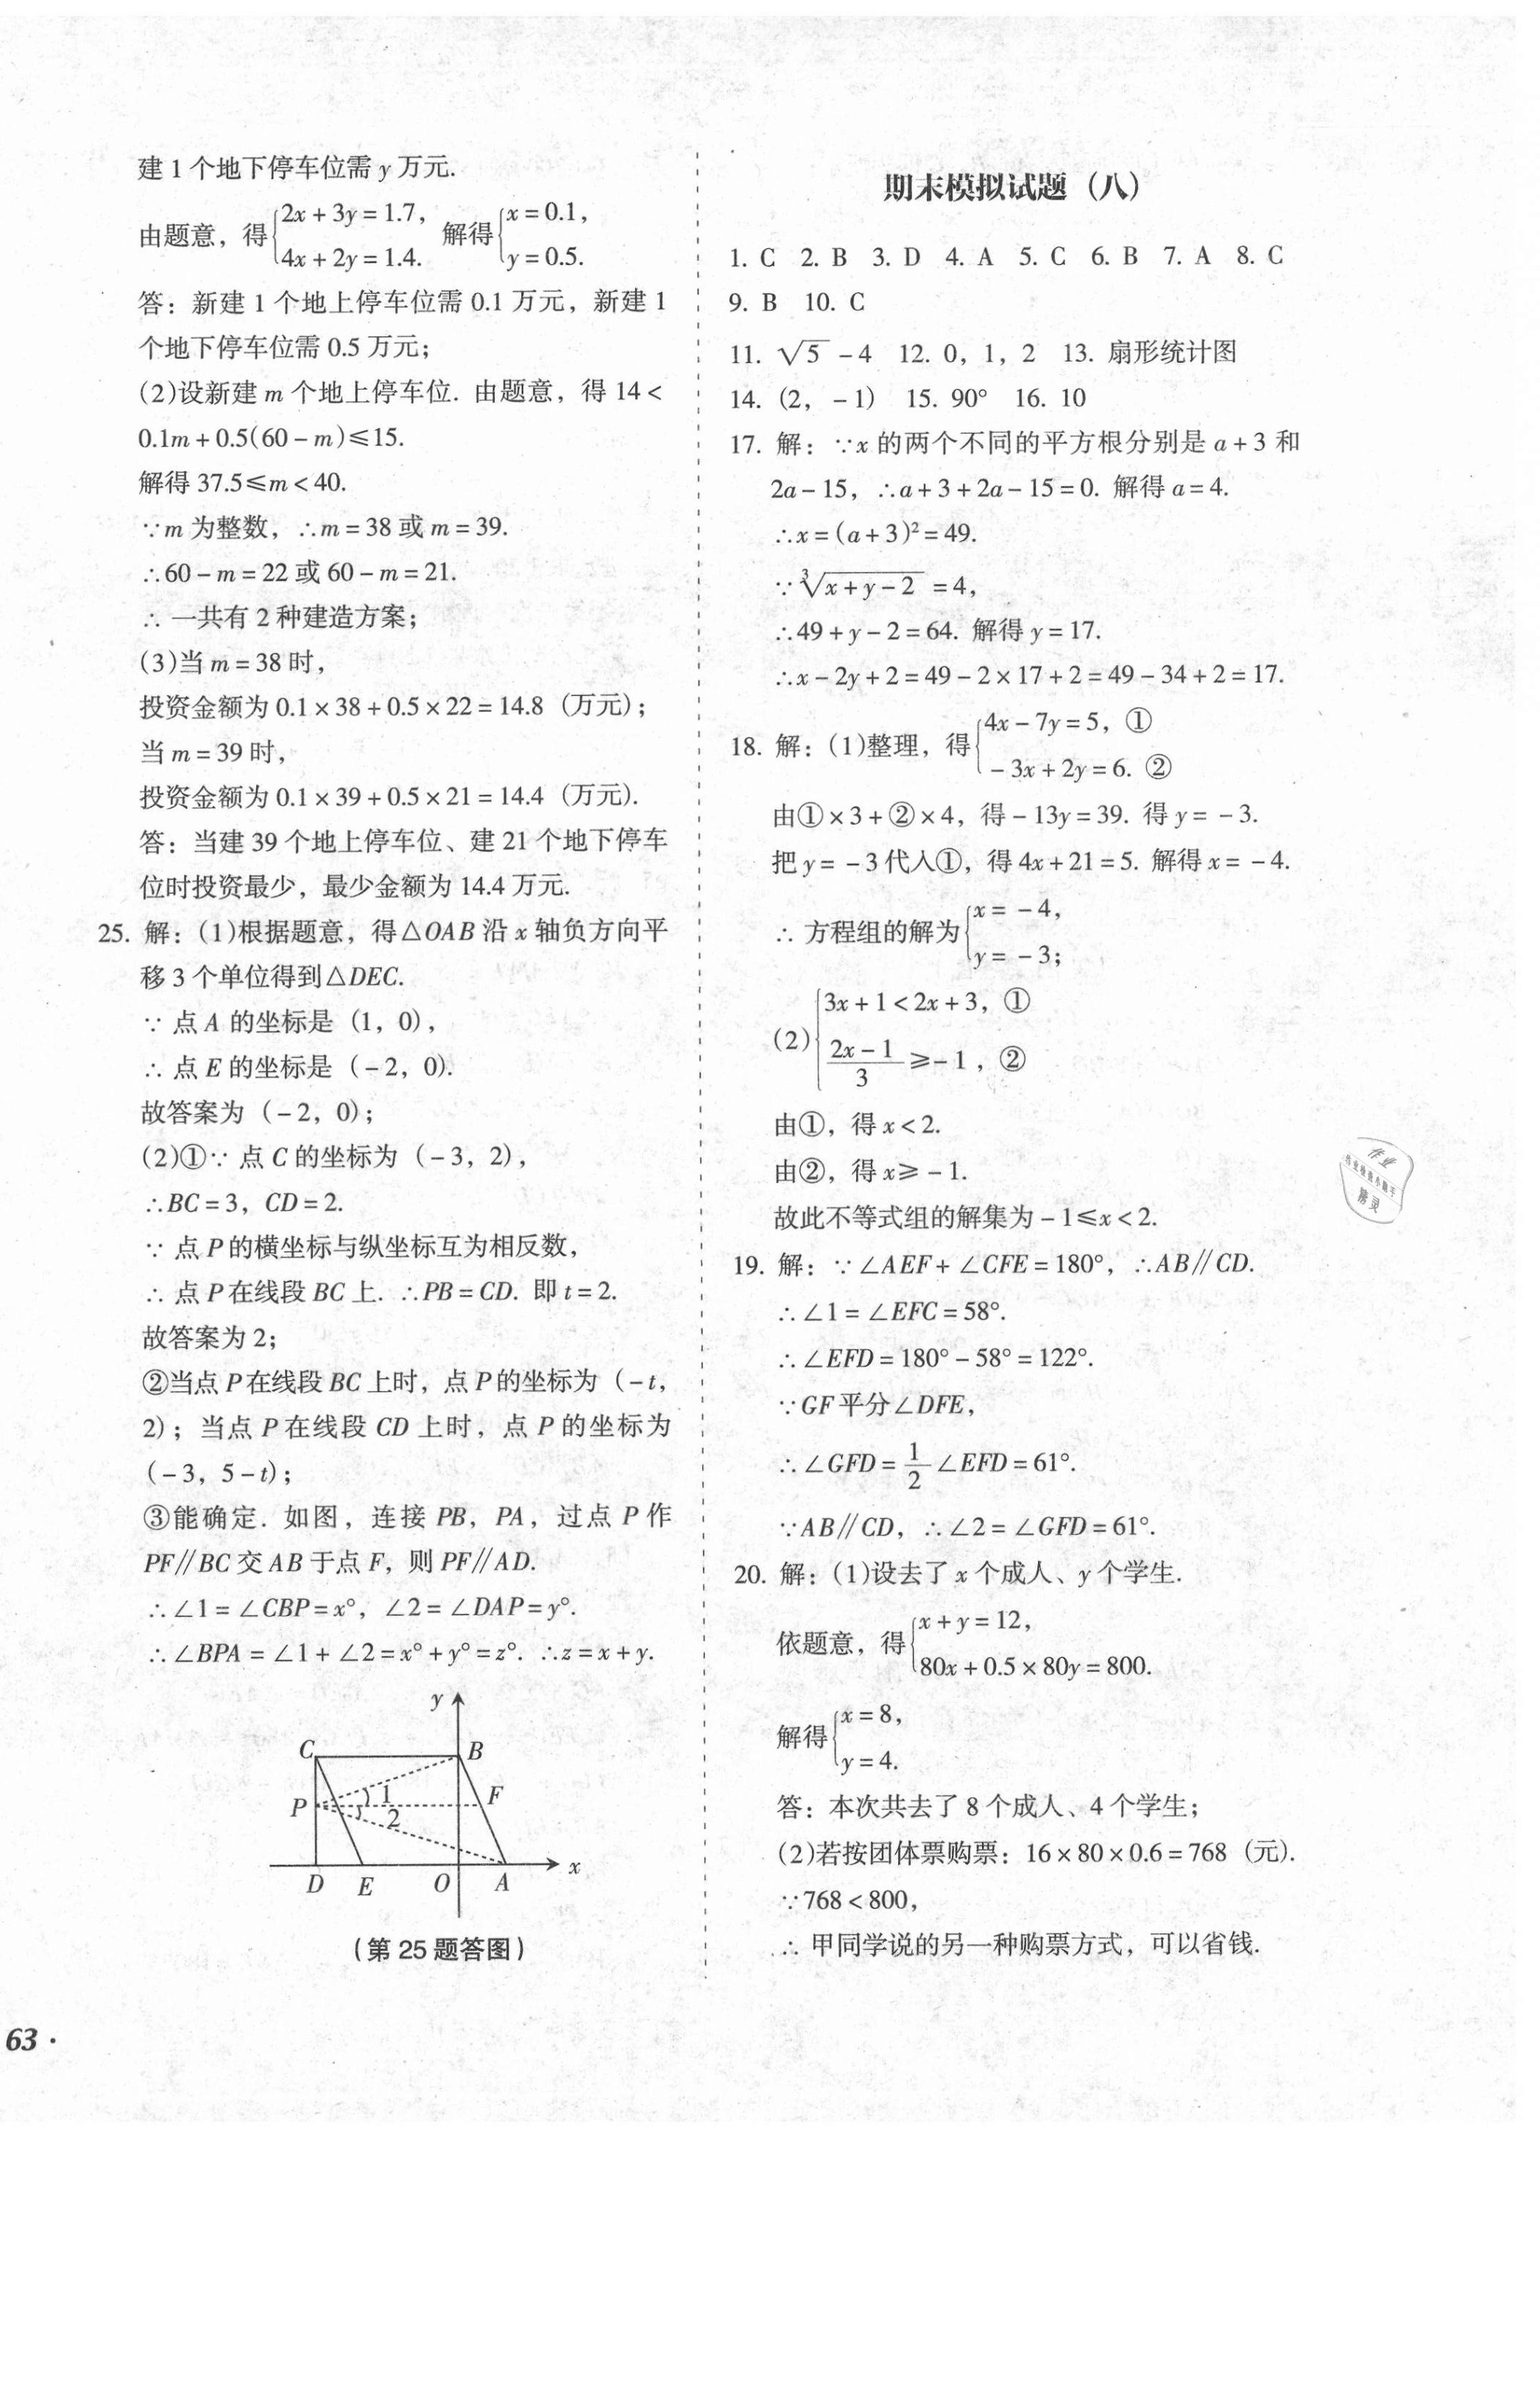 建 1 个地下停车位需 y 万元.
由题意，得{2x + 3y = 1.7, 4x + 2y = 1.4. 解得{x = 0.1, y = 0.5.
答：新建 1 个地上停车位需 0.1 万元，新建 1
个地下停车位需 0.5 万元；
(2)设新建 m 个地上停车位. 由题意，得 14 <
0.1m + 0.5(60 − m) ≤ 15.
解得 37.5 ≤ m < 40.
∵ m 为整数，∴ m = 38 或 m = 39.
∴ 60 − m = 22 或 60 − m = 21.
∴ 一共有 2 种建造方案；
(3)当 m = 38 时，
投资金额为 0.1 × 38 + 0.5 × 22 = 14.8（万元）；
当 m = 39 时，
投资金额为 0.1 × 39 + 0.5 × 21 = 14.4（万元）.
答：当建 39 个地上停车位、建 21 个地下停车
位时投资最少，最少金额为 14.4 万元.
25. 解：(1)根据题意，得△OAB 沿 x 轴负方向平
移 3 个单位得到△DEC.
∵ 点 A 的坐标是（1，0），
∴ 点 E 的坐标是（−2，0）.
故答案为（−2，0）；
(2)①∵ 点 C 的坐标为（−3，2），
∴ BC = 3，CD = 2.
∵ 点 P 的横坐标与纵坐标互为相反数，
∴ 点 P 在线段 BC 上. ∴ PB = CD. 即 t = 2.
故答案为 2；
②当点 P 在线段 BC 上时，点 P 的坐标为（−t，
2）；当点 P 在线段 CD 上时，点 P 的坐标为
（−3，5−t）；
③能确定. 如图，连接 PB，PA，过点 P 作
PF∥BC 交 AB 于点 F，则 PF∥AD.
∴ ∠1 = ∠CBP = x°，∠2 = ∠DAP = y°.
∴ ∠BPA = ∠1 + ∠2 = x° + y° = z°. ∴ z = x + y.
y
C B
P 1 F
2
D E O A x
（第 25 题答图）
63 ·
期末模拟试题（八）
1. C 2. B 3. D 4. A 5. C 6. B 7. A 8. C
9. B 10. C
11. √5 − 4 12. 0，1，2 13. 扇形统计图
14. （2，−1） 15. 90° 16. 10
17. 解：∵ x 的两个不同的平方根分别是 a + 3 和
2a − 15，∴ a + 3 + 2a − 15 = 0. 解得 a = 4.
∴ x = (a + 3)² = 49.
∵ ∛(x + y − 2) = 4，
∴ 49 + y − 2 = 64. 解得 y = 17.
∴ x − 2y + 2 = 49 − 2 × 17 + 2 = 49 − 34 + 2 = 17.
18. 解：(1)整理，得{4x − 7y = 5，① −3x + 2y = 6. ②
由① × 3 + ② × 4，得 −13y = 39. 得 y = −3.
把 y = −3 代入①，得 4x + 21 = 5. 解得 x = −4.
∴ 方程组的解为{x = −4， y = −3；
(2){3x + 1 < 2x + 3，① (2x − 1)/3 ≥ −1，②
由①，得 x < 2.
由②，得 x ≥ −1.
故此不等式组的解集为 −1 ≤ x < 2.
19. 解：∵ ∠AEF + ∠CFE = 180°，∴ AB∥CD.
∴ ∠1 = ∠EFC = 58°.
∴ ∠EFD = 180° − 58° = 122°.
∵ GF 平分∠DFE，
∴ ∠GFD = 1/2 ∠EFD = 61°.
∵ AB∥CD，∴ ∠2 = ∠GFD = 61°.
20. 解：(1)设去了 x 个成人、y 个学生.
依题意，得{x + y = 12， 80x + 0.5 × 80y = 800.
解得{x = 8， y = 4.
答：本次共去了 8 个成人、4 个学生；
(2)若按团体票购票：16 × 80 × 0.6 = 768（元）.
∵ 768 < 800，
∴ 甲同学说的另一种购票方式，可以省钱.
作业